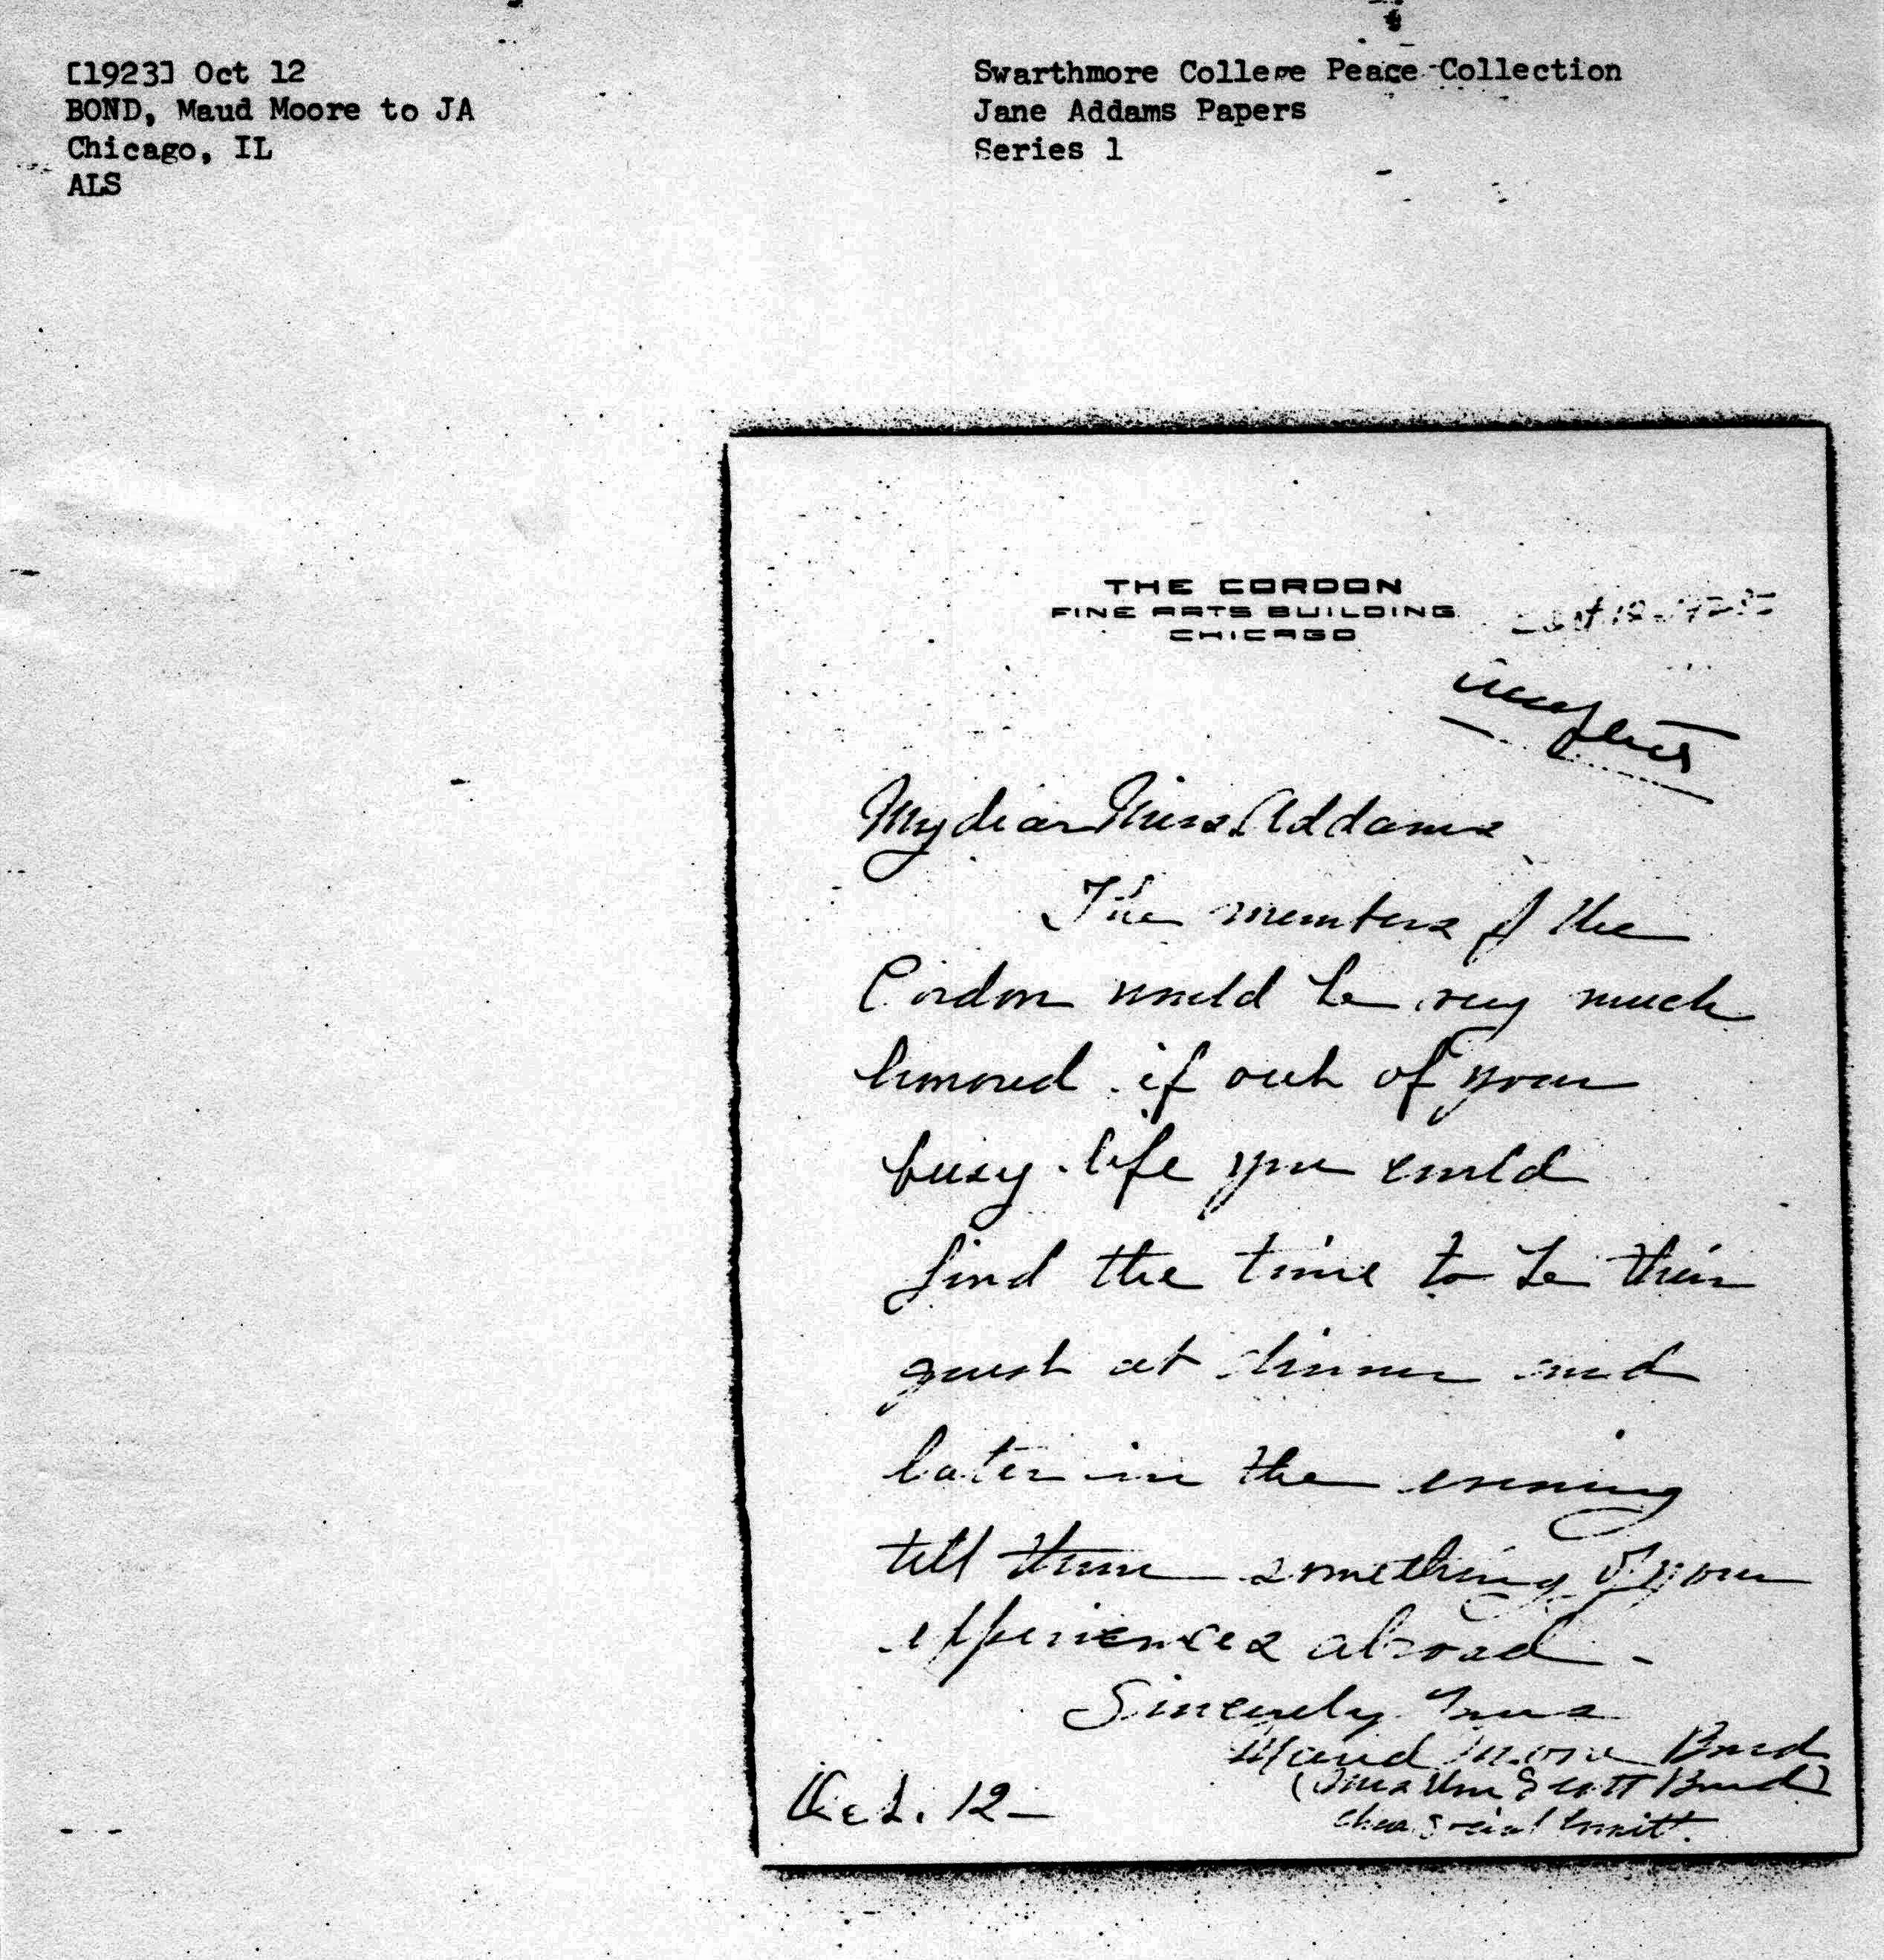 [1923] Oct 12
BOND, Maud Moore to JA
Chicago, IL
ALS
Swarthmore College Peace Collection
Jane Addams Papers
Series 1
THE CORDON
FINE ARTS BUILDING
CHICAGO
My dear Miss Addams
The members of the
Cordon would be very much
honored if out of your
busy life you could
find the time to be their
guest at dinner and
later in the evening
tell them something of your
experiences abroad.
Sincerely Yours
Maud Moore Bond
(Mrs Wm Scott Bond)
Oct. 12 -
Chm Social Committ.